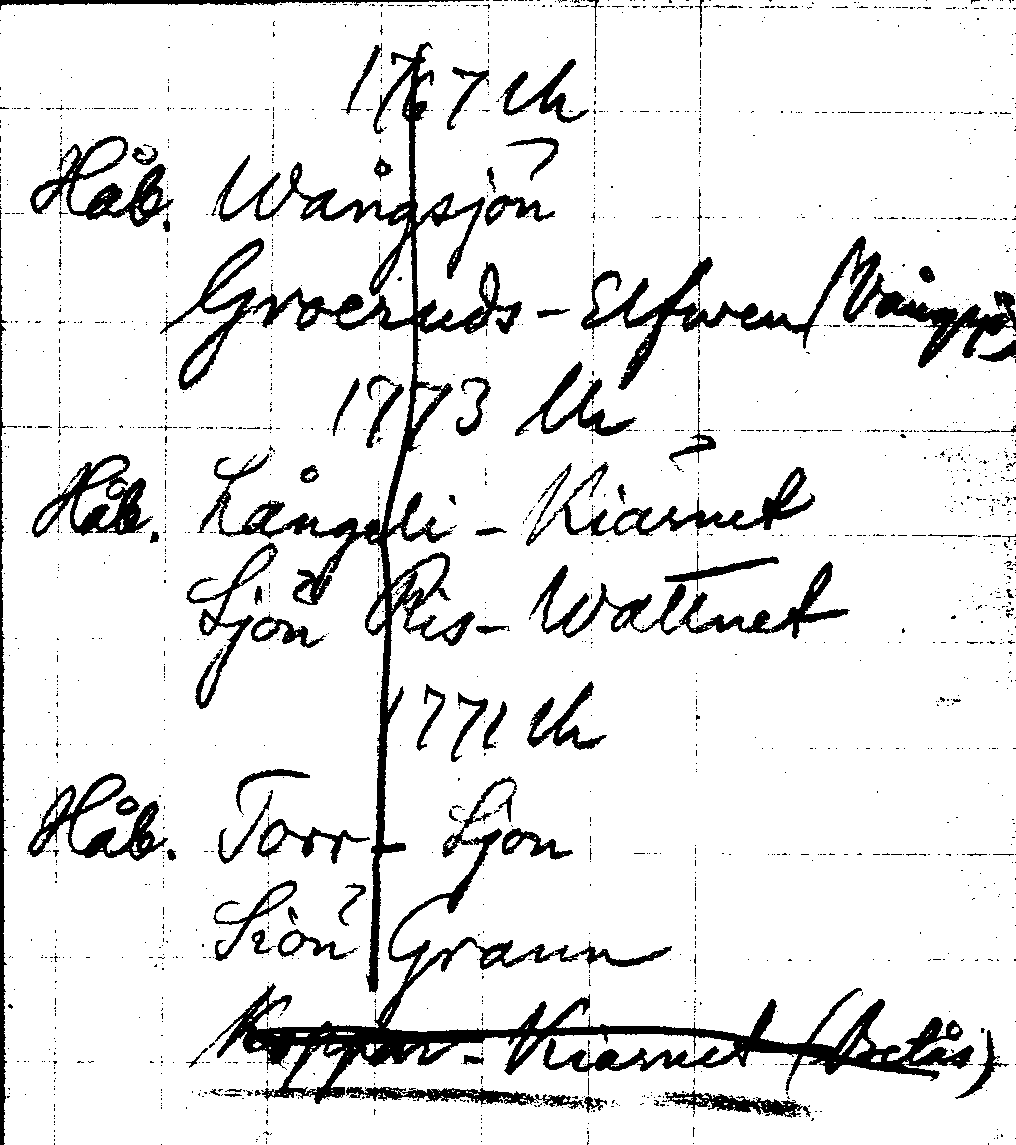 1767 Uk
Håb. Wångsjön
Groeruds-Elfwen (Vångsjö)
1773 Uk
Håb. Långeli-Kiärnet
Sjön Ris-Wattnet
1771 Uk
Håb. Torr-Sjön
Siön Graun
Koppar-Kiärnet (Betås)